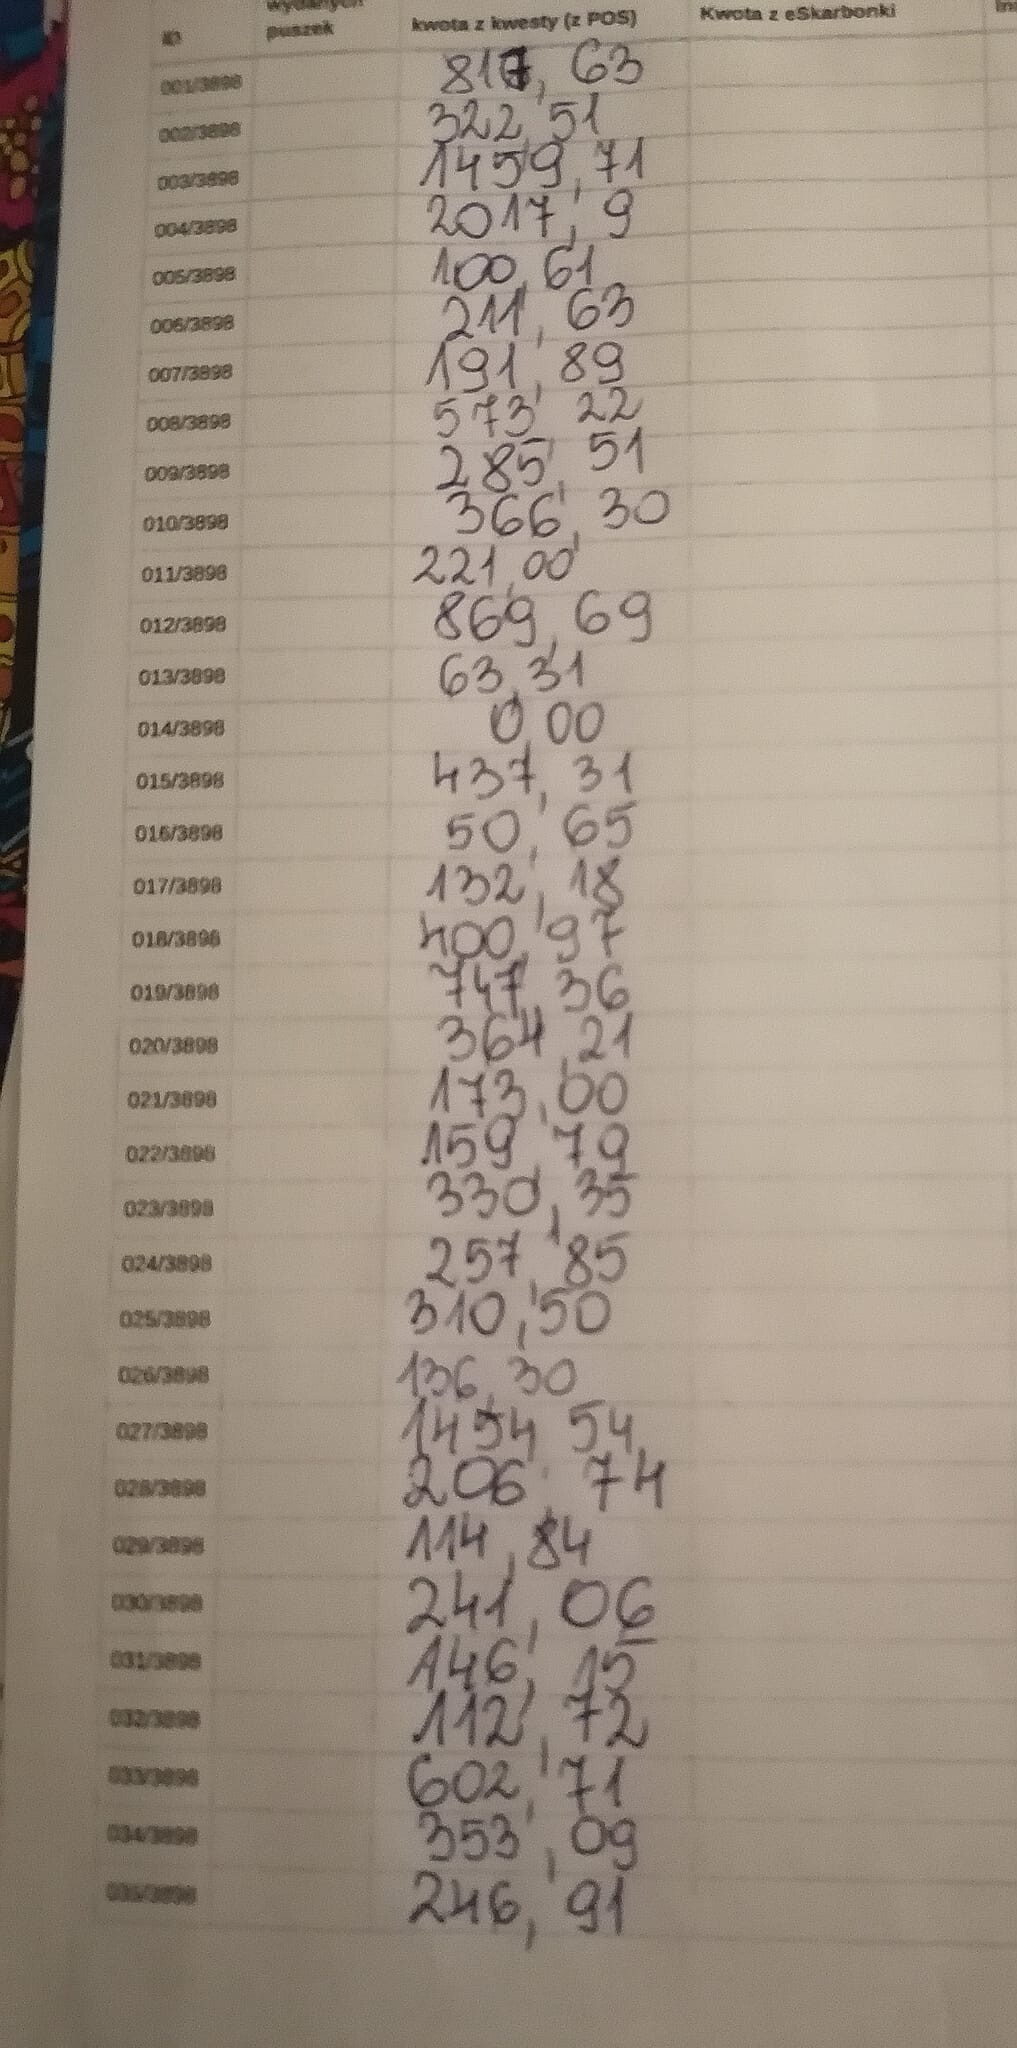 ID wydanych puszek kwota z kwesty (z POS) Kwota z eSkarbonki
001/3898 817, 63
002/3898 322, 51
003/3898 1459, 71
004/3898 2017, 9
005/3898 100, 61
006/3898 211, 63
007/3898 191, 89
008/3898 573, 22
009/3898 285, 51
010/3898 366, 30
011/3898 221, 00
012/3898 869, 69
013/3898 63, 31
014/3898 0, 00
015/3898 437, 31
016/3898 50, 65
017/3898 132, 18
018/3898 400, 97
019/3898 747, 36
020/3898 364, 21
021/3898 173, 00
022/3898 159, 79
023/3898 330, 35
024/3898 257, 85
025/3898 310, 50
026/3898 136, 30
027/3898 1454, 54
028/3898 206, 74
029/3898 114, 84
030/3898 241, 06
031/3898 146, 15
032/3898 112, 72
033/3898 602, 71
034/3898 353, 09
035/3898 246, 91